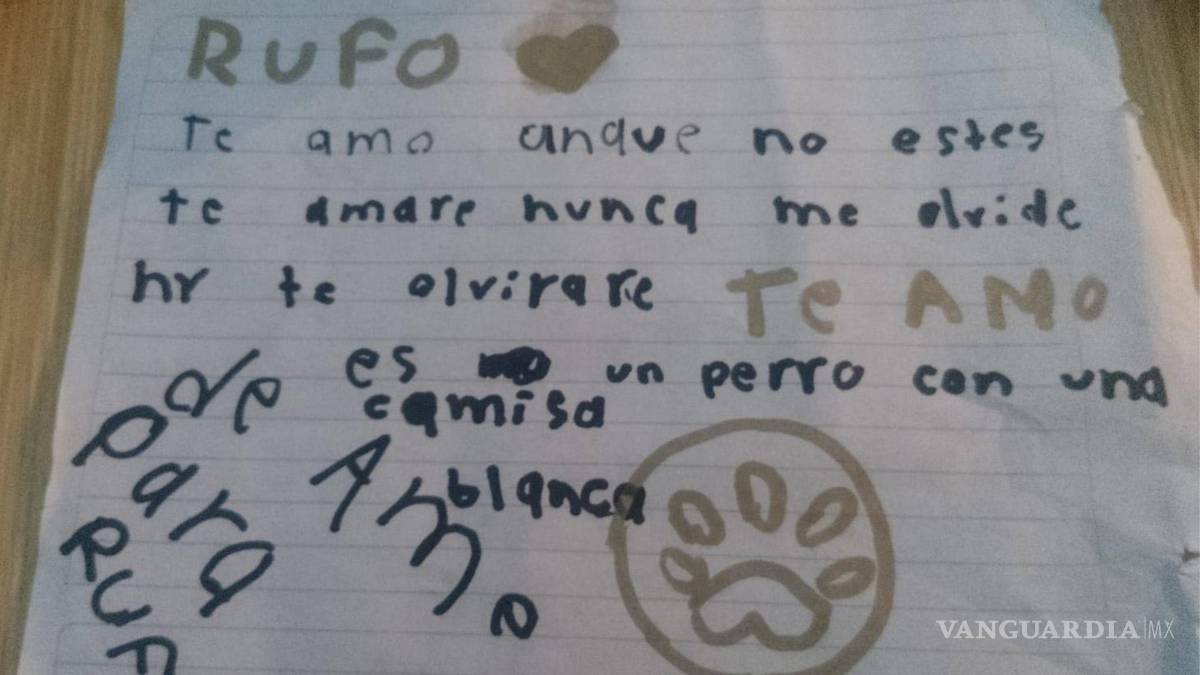 RUFO
Te amo anque no estes
te amare nunca me olvide
hr te olvirare TE AMO
es un perro con una
camisa
blanca
de
Para
RUF
VANGUARDIA|MX